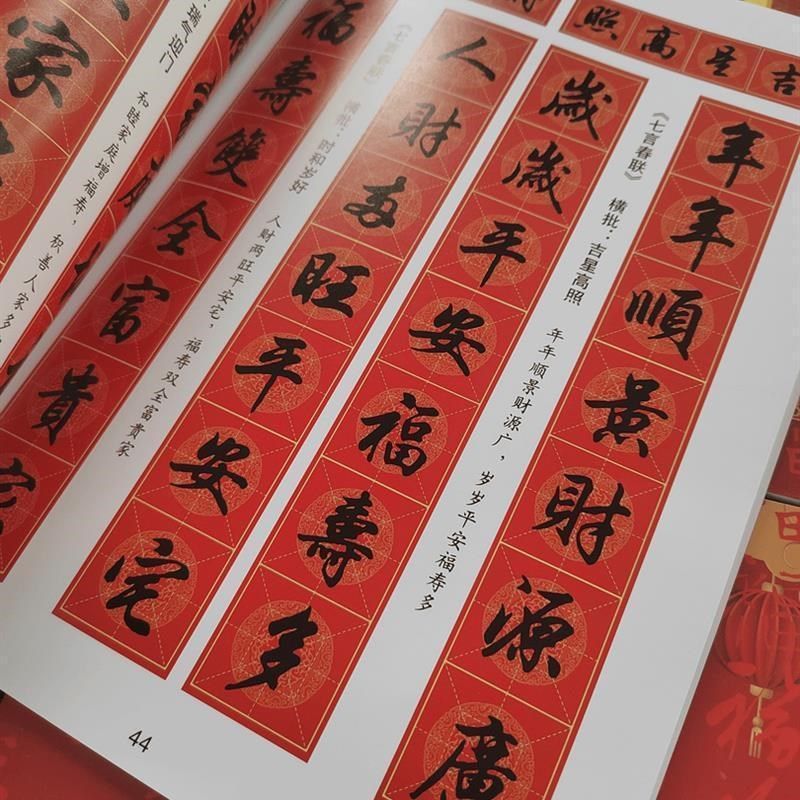 吉星高照
年年順景財源廣
《七言春联》 横批：吉星高照 年年顺景财源广，岁岁平安福寿多
歲歲平安福壽多
人財兩旺平安宅
《七言春联》 横批：时和岁好 人财两旺平安宅，福寿双全富贵家
福壽雙全富貴家
瑞气迎门 和睦家庭增福寿，积善人家多
家
44